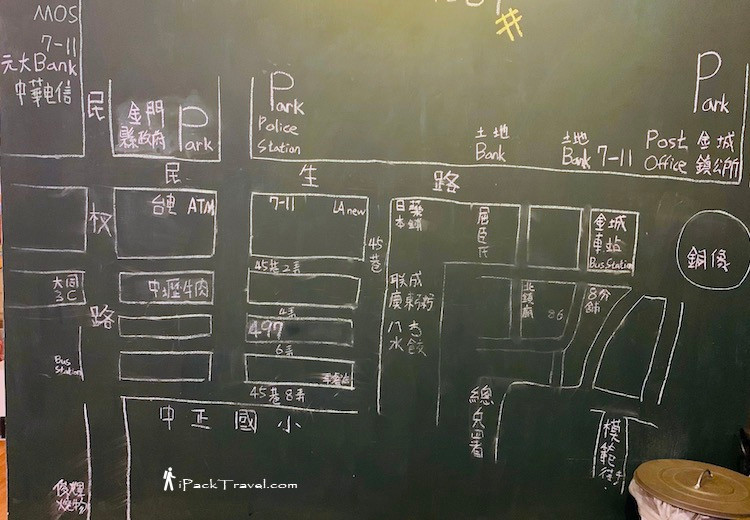 MOS
7-11
元大Bank
中華电信
#
民
权
路
金門
縣政府
Park
Park
Police
Station
土地
Bank
土地
Bank
7-11
Park
Post
Office
金城
鎮公所
民 生 路
台电 ATM
7-11
LA new
45巷
日藥
本鋪
屈臣氏
金城
車站
Bus Station
銅像
45巷2弄
大同
3C
中壢牛肉
4弄
497
6弄
45巷8弄
联成
廣東粥
水餃
北鎮廟
86
Bus
Station
中正國小
總兵署
模範街
燒物
iPackTravel.com